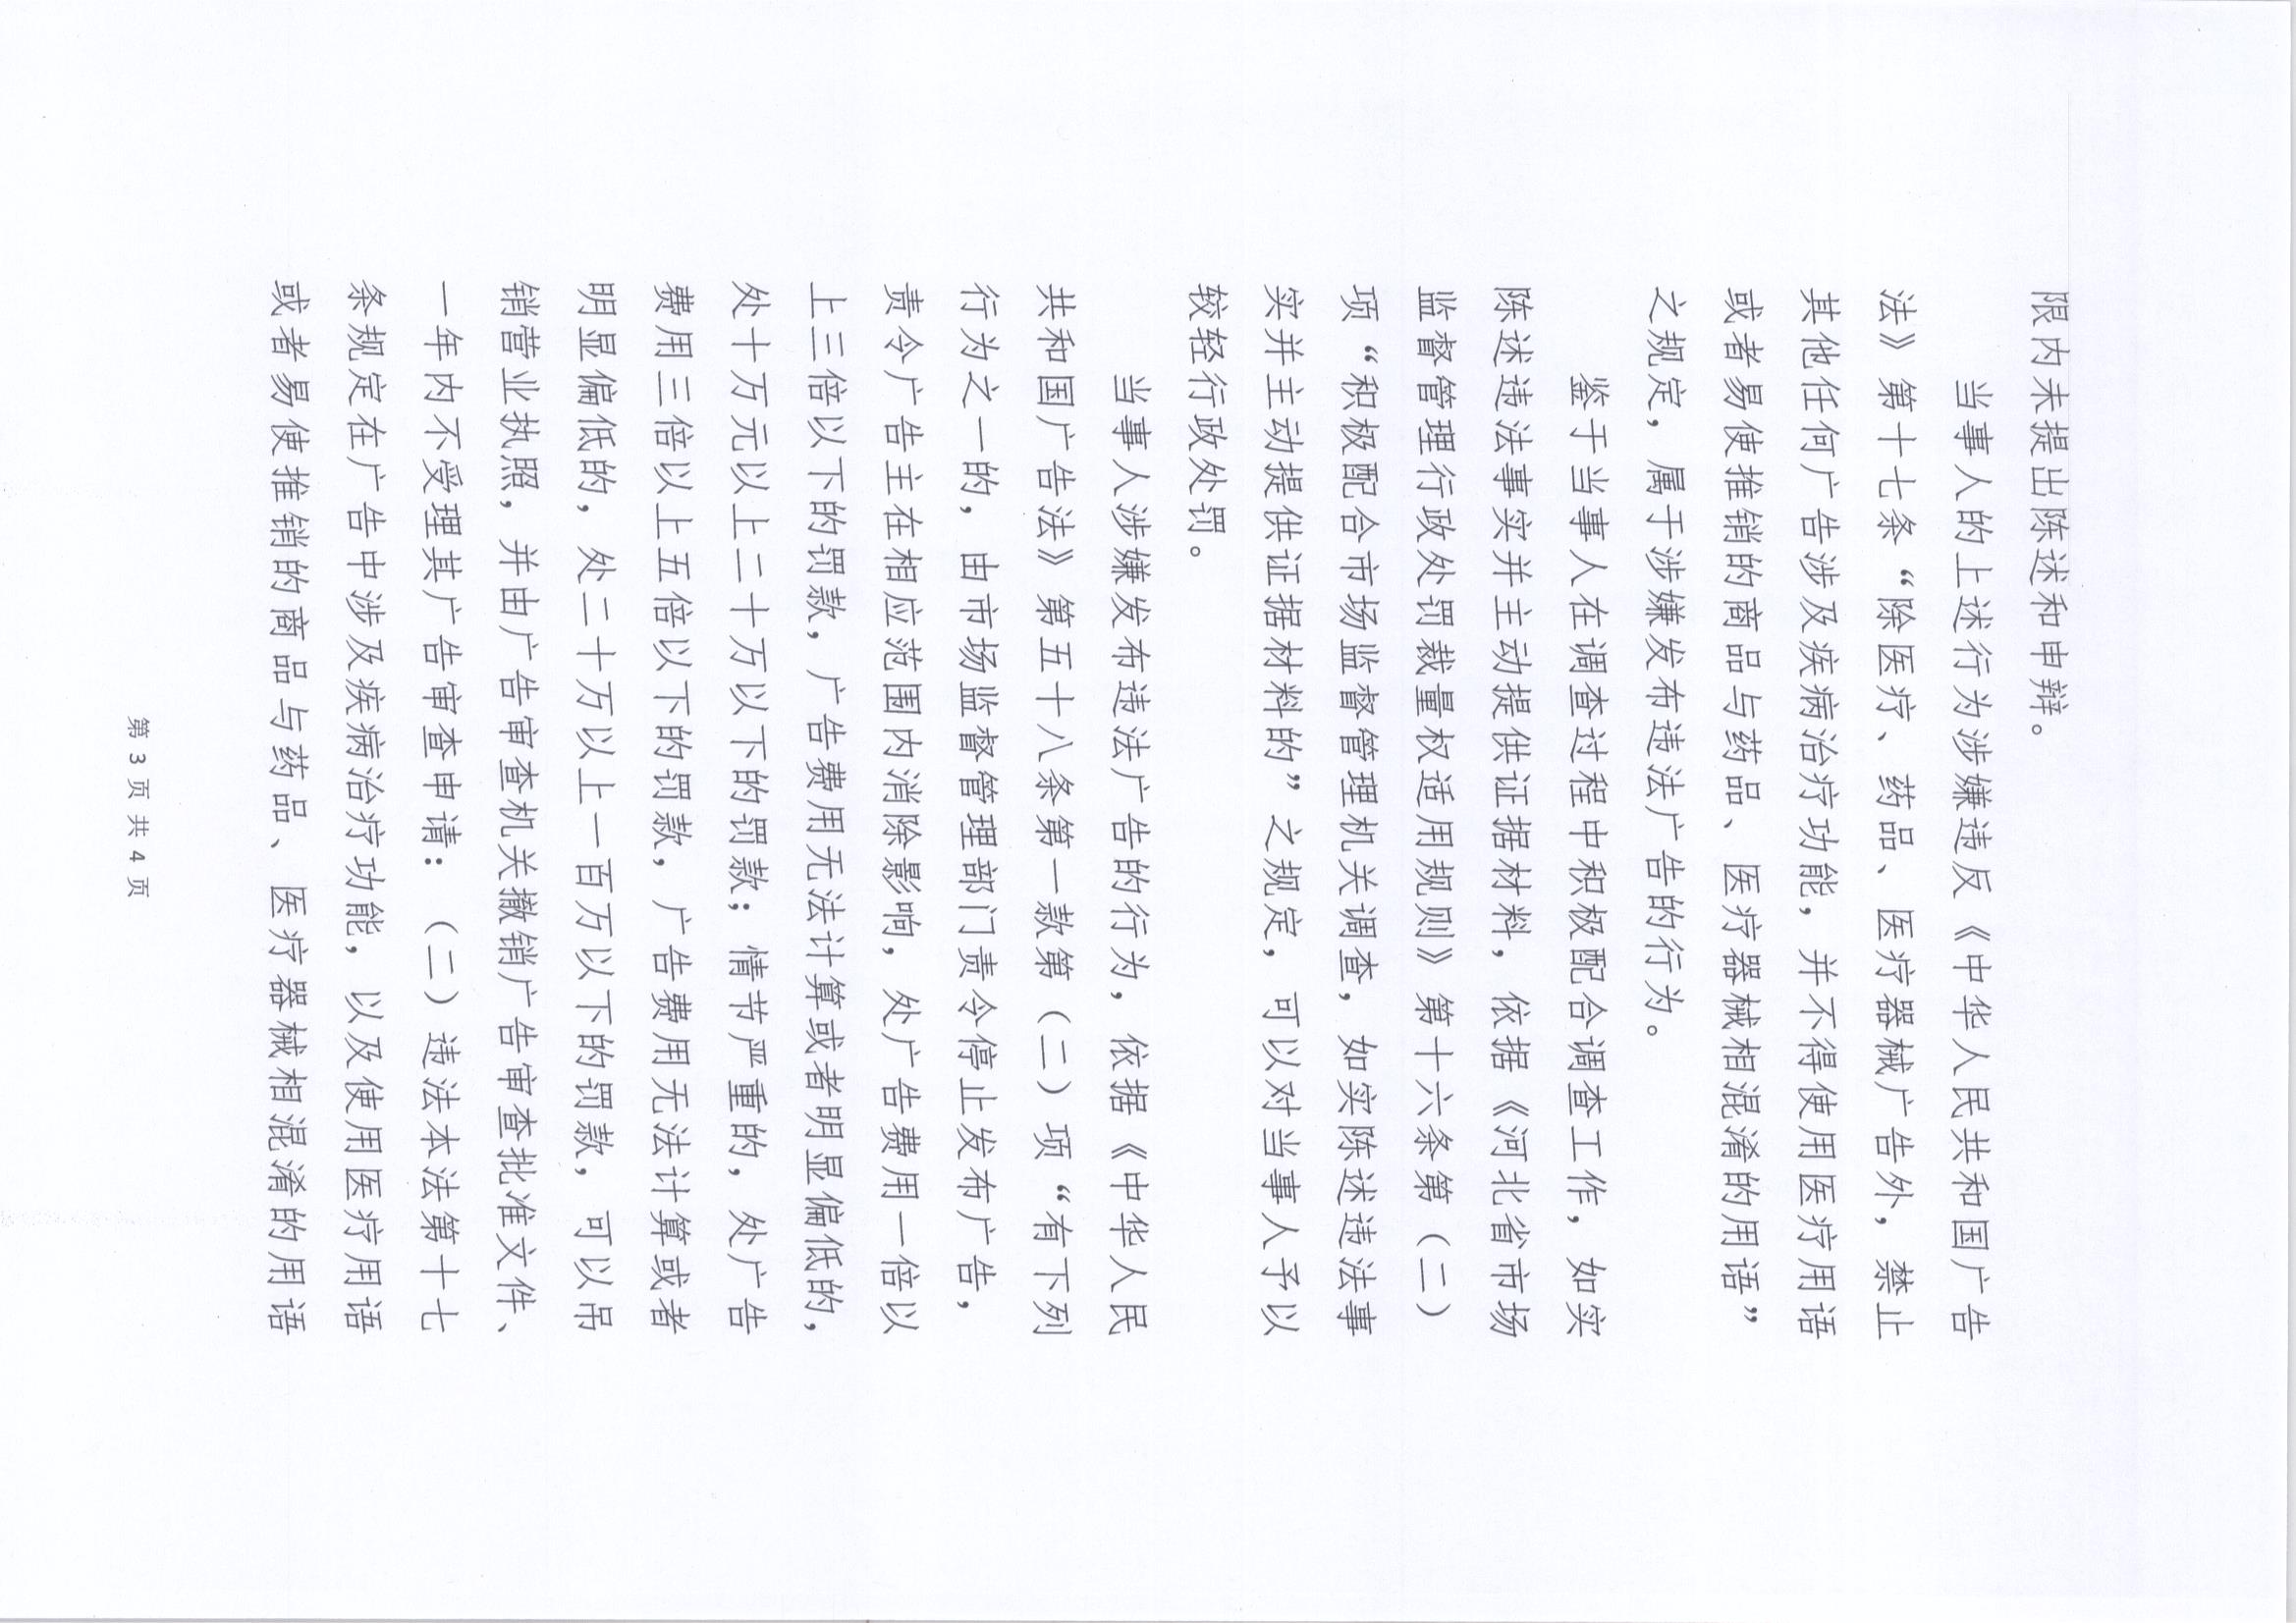 限内未提出陈述和申辩。
当事人的上述行为涉嫌违反《中华人民共和国广告
法》第十七条“除医疗、药品、医疗器械广告外，禁止
其他任何广告涉及疾病治疗功能，并不得使用医疗用语
或者易使推销的商品与药品、医疗器械相混淆的用语”
之规定，属于涉嫌发布违法广告的行为。
鉴于当事人在调查过程中积极配合调查工作，如实
陈述违法事实并主动提供证据材料，依据《河北省市场
监督管理行政处罚裁量权适用规则》第十六条第（二）
项“积极配合市场监督管理机关调查，如实陈述违法事
实并主动提供证据材料的”之规定，可以对当事人予以
较轻行政处罚。
当事人涉嫌发布违法广告的行为，依据《中华人民
共和国广告法》第五十八条第一款第（二）项“有下列
行为之一的，由市场监督管理部门责令停止发布广告，
责令广告主在相应范围内消除影响，处广告费用一倍以
上三倍以下的罚款，广告费用无法计算或者明显偏低的，
处十万元以上二十万以下的罚款；情节严重的，处广告
费用三倍以上五倍以下的罚款，广告费用无法计算或者
明显偏低的，处二十万以上一百万以下的罚款，可以吊
销营业执照，并由广告审查机关撤销广告审查批准文件、
一年内不受理其广告审查申请：（二）违法本法第十七
条规定在广告中涉及疾病治疗功能，以及使用医疗用语
或者易使推销的商品与药品、医疗器械相混淆的用语
第 3 页 共 4 页